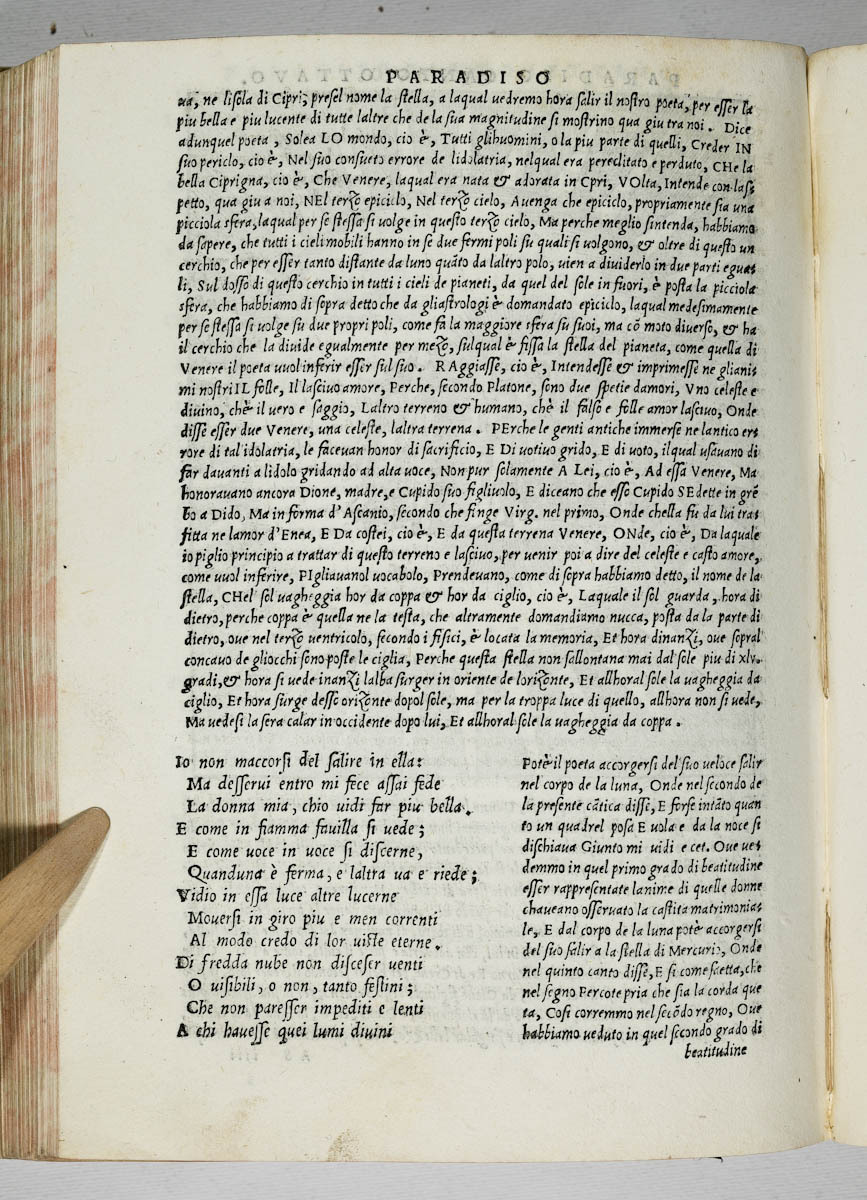 PARADISO
ua, ne lisola di Cipri; presel nome la stella, a laqual uedremo hora salir il nostro poeta, per esser la
piu bella e piu lucente di tutte laltre che de la sua magnitudine si mostrino qua giu tra noi. Dice
adunquel poeta, Solea LO mondo, cio è, Tutti glihuomini, o la piu parte di quelli, Creder IN
suo periclo, cio è, Nel suo consueto errore de lidolatria, nelqual era pereclitato e perduto, CHe la
bella Ciprigna, cio è, Che Venere, laqual era nata & adorata in Cpri, VOlta, Intende con las
petto, qua giu a noi, NEl terzo epiciclo, Nel terzo cielo, Auenga che epiciclo, propriamente sia una
picciola sfera, laqual per se stessa si uolge in questo terzo cielo, Ma perche meglio sintenda, habbiamo
da sapere, che tutti i cieli mobili hanno in se due fermi poli su quali si uolgono, & oltre di questo un
cerchio, che per esser tanto distante da luno quãto da laltro polo, uien a diuiderlo in due parti egua-
li, Sul dosso di questo cerchio in tutti i cieli de pianeti, da quel del sole in fuori, è posta la picciola
sfera, che habbiamo di sopra detto che da gliastrologi è domandato epiciclo, laqual medesimamente
per se stessa si uolge su due propri poli, come fa la maggiore sfera su suoi, ma cõ moto diuerso, & ha
il cerchio che la diuide egualmente per mezo, sulqual è fissa la stella del pianeta, come quella di
Venere il poeta uuol inferir esser sul suo. RAggiasse, cio è, Intendesse & imprimesse ne glianis
mi nostri IL folle, Il lasciuo amore, Perche, secondo Platone, sono due spetie damori, Vno celeste e
diuino, chè il uero e saggio, Laltro terreno & humano, chè il falso e folle amor lasciuo, Onde
disse esser due Venere, una celeste, laltra terrena. PErche le genti antiche immerse ne lantico er-
rore di tal idolatria, le faceuan honor di sacrificio, E Di uotiuo grido, E di uoto, ilqual usauano di
far dauanti a lidolo gridando ad alta uoce, Non pur solamente A Lei, cio è, Ad essa Venere, Ma
honorauano ancora Dione, madre, e Cupido suo figliuolo, E diceano che esso Cupido SEdette in grẽ
bo a Dido, Ma in forma d'Ascanio, secondo che finge Virg. nel primo, Onde chella fu da lui tras
fitta ne lamor d'Enea, E Da costei, cio è, E da questa terrena Venere, ONde, cio è, Da laquale
io piglio principio a trattar di questo terreno e lasciuo, per uenir poi a dire del celeste e casto amore,
come uuol inferire, PIgliauanol uocabolo, Prendeuano, come di sopra habbiamo detto, il nome de la
stella, CHel sol uagheggia hor da coppa & hor da ciglio, cio è, Laquale il sol guarda, hora di
dietro, perche coppa è quella ne la testa, che altramente domandiamo nucca, posta da la parte di
dietro, oue nel terzo uentricolo, secondo i fisici, è locata la memoria, Et hora dinanzi, oue sopral
concauo de gliocchi sono poste le ciglia, Perche questa stella non sallontana mai dal sole piu di xlv.
gradi, & hora si uede inanzi lalba surger in oriente de lorizonte, Et allhoral sole la uagheggia da
ciglio, Et hora surge desso orizonte dopol sole, ma per la troppa luce di quello, allhora non si uede,
Ma uedesi la sera calar in occidente dopo lui, Et allhoral sole la uagheggia da coppa.
Io non maccorsi del salire in ella:
Ma desserui entro mi fece assai fede
La donna mia, chio uidi far piu bella.
E come in fiamma fauilla si uede;
E come uoce in uoce si discerne,
Quanduna è ferma, e laltra ua e riede;
Vidio in essa luce altre lucerne
Mouersi in giro piu e men correnti
Al modo credo di lor uiste eterne.
Di fredda nube non disceser uenti
O uisibili, o non, tanto festini;
Che non paresser impediti e lenti
A chi hauesse quei lumi diuini
Potè il poeta accorgersi del suo ueloce salir
nel corpo de la luna, Onde nel secondo de
la presente cãtica disse, E forse intãto quan
to un quadrel posa E uola e da la noce si
dischiaua Giunto mi uidi e cet. Oue ue-
demmo in quel primo grado di beatitudine
esser rappresentate lanime di quelle donne
chaueano osseruato la castita matrimonia-
le, E dal corpo de la luna potè accorgersi
del suo salir a la stella di Mercurio, Onde
nel quinto canto disse, E si come saetta, che
nel segno Percote pria che sia la corda que
ta, Cosi corremmo nel secõdo regno, Oue
habbiamo ueduto in quel secondo grado di
beatitudine